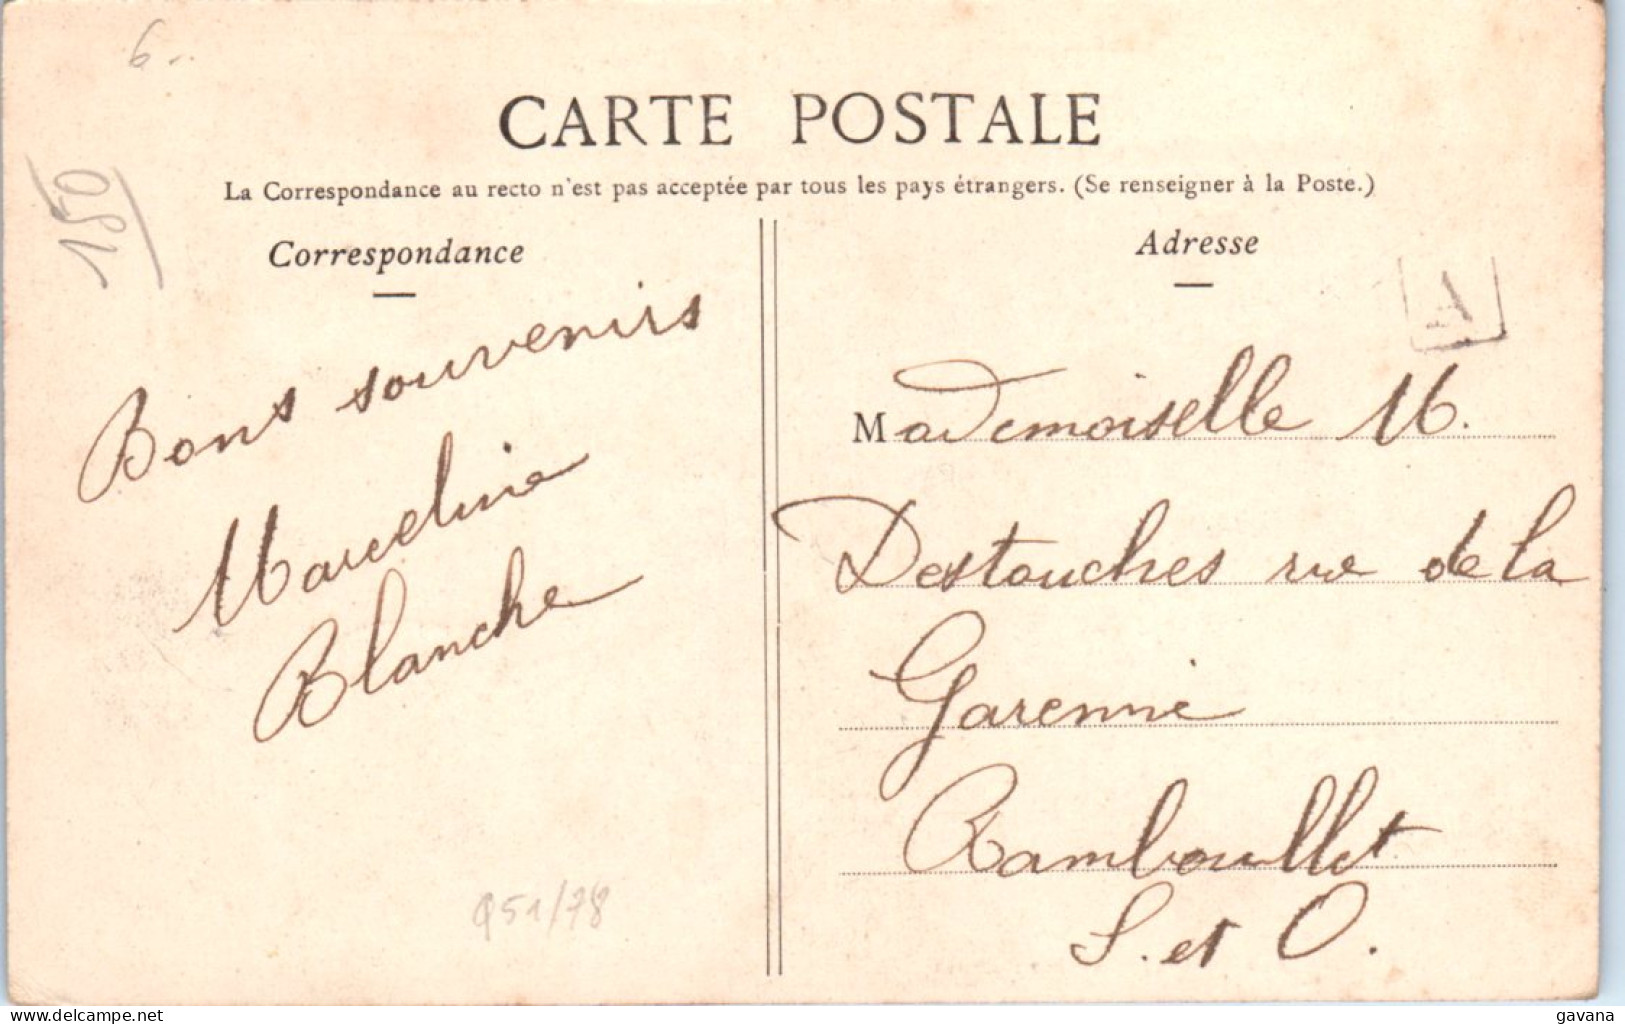 6..
CARTE POSTALE
La Correspondance au recto n'est pas acceptée par tous les pays étrangers. (Se renseigner à la Poste.)
150
Correspondance
Bons souvenirs
Marceline
Blanche
Adresse
A
Mademoiselle M.
Destouches rue de la
Garenne
Rambouillet
S. et O.
51/78
www.delcampe.net
gavana